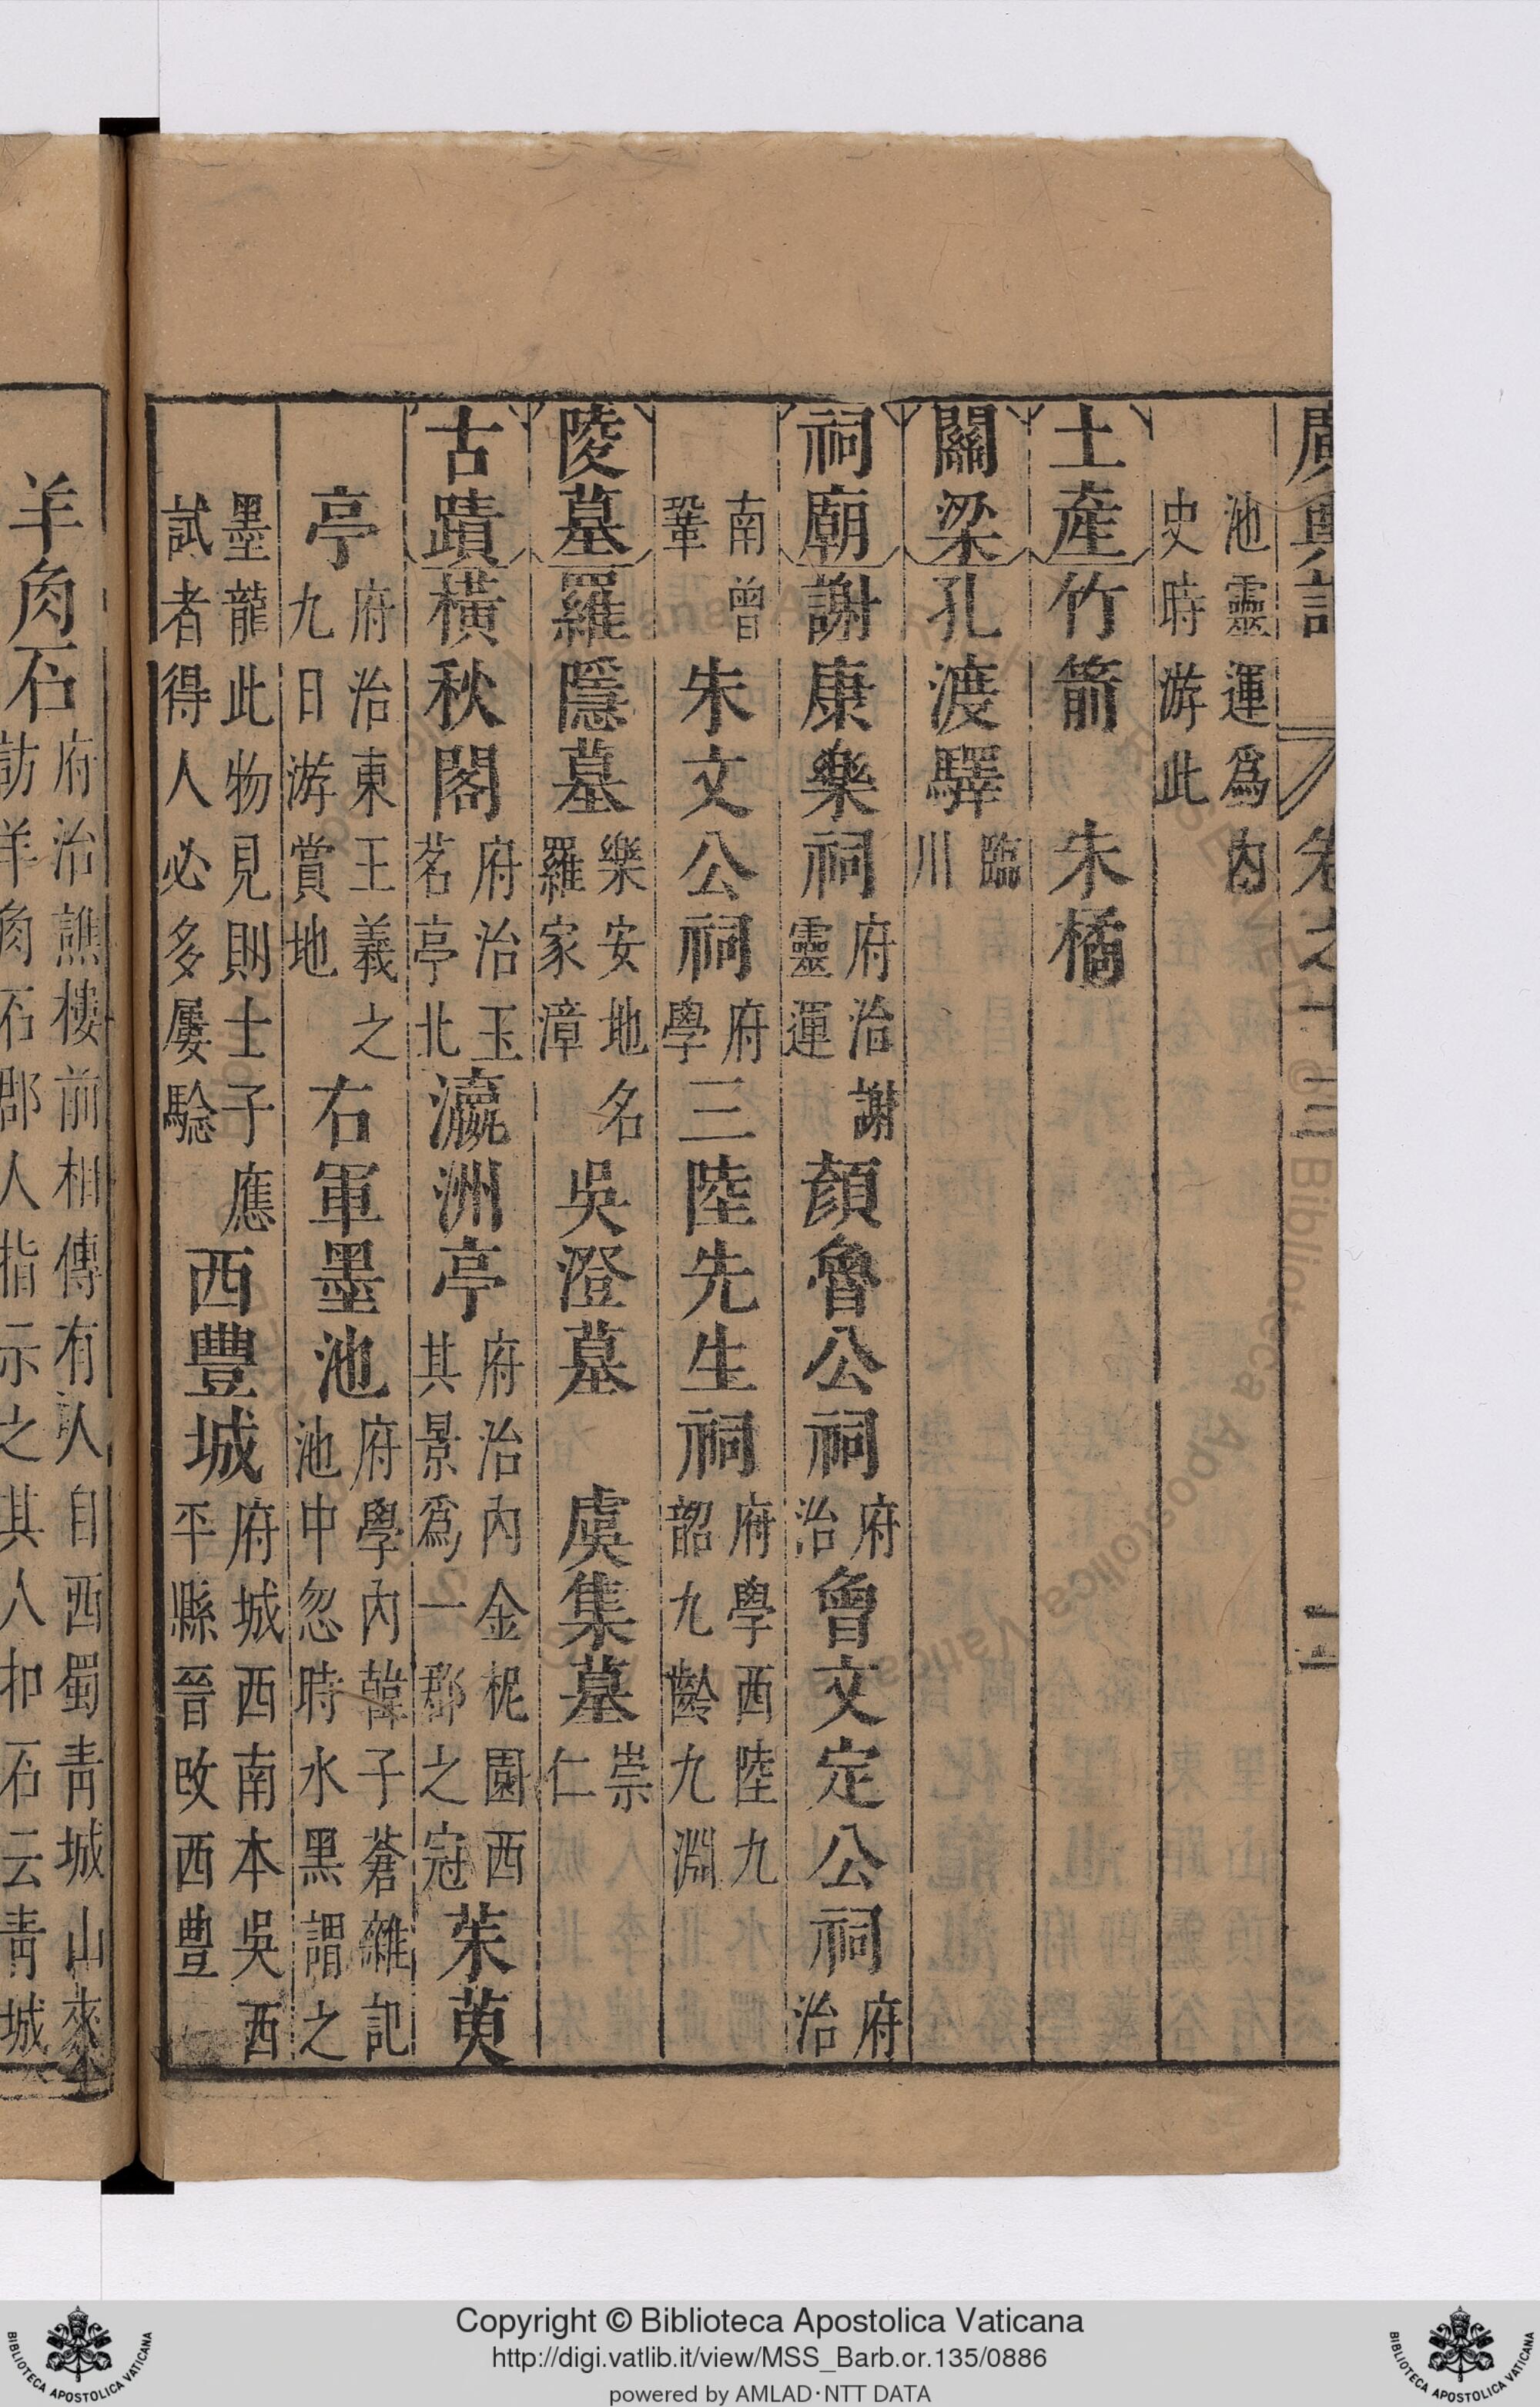 廣輿記 卷之十二
池靈運爲內史時游此
土産 竹箭 朱橘
關梁 孔渡驛 臨川
祠廟 謝康樂祠 府治謝靈運 顏魯公祠 府治 曾文定公祠 府治
南曾鞏 朱文公祠 府學 三陸先生祠 府學西陸九韶九齡九淵
陵墓 羅隱墓 樂安地名羅家漳 吳澄墓 虞集墓 崇仁
古蹟 橫秋閣 府治玉茗亭北 瀛洲亭 府治內金柅園西其景爲一郡之冠 茱萸
亭 府治東王羲之九日游賞地 右軍墨池 府學內韓子蒼雜記池中忽時水黑謂之
墨龍此物見則士子應試者得人必多屢騐 西豐城 府城西南本吳西平縣晉改西豊
羊角石 府治譙樓前相傳有人自西蜀青城山來訪羊角石郡人指示之其人扣石云青城
Copyright © Biblioteca Apostolica Vaticana
http://digi.vatlib.it/view/MSS_Barb.or.135/0886
powered by AMLAD·NTT DATA
BIBLIOTECA APOSTOLICA VATICANA
BIBLIOTECA APOSTOLICA VATICANA